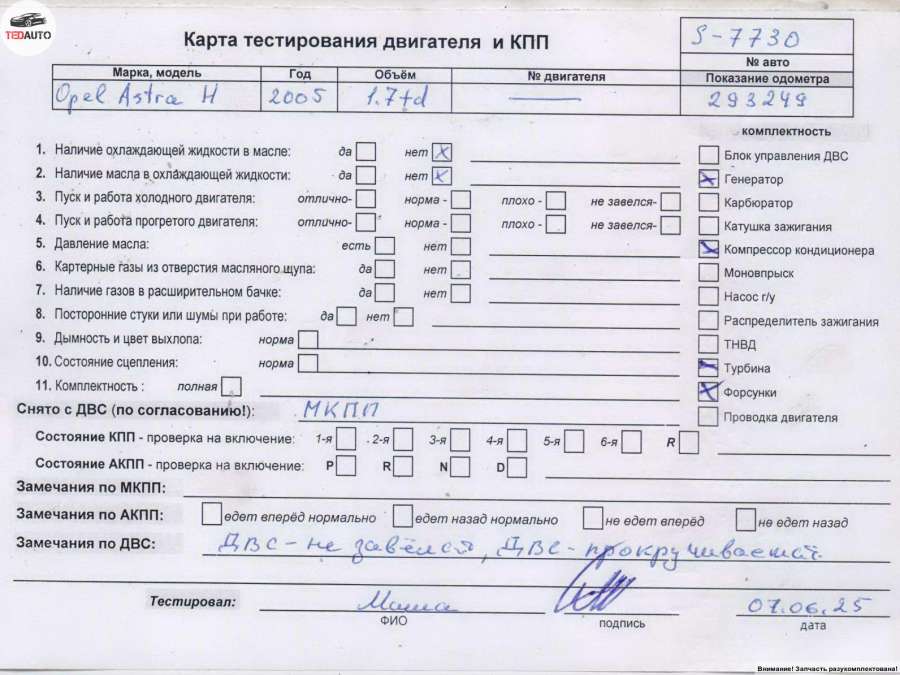 TEDAUTO
Карта тестирования двигателя и КПП
S-7730
№ авто
Марка, модель Год Объём № двигателя Показание одометра
Opel Astra H 2005 1.7td — 293249
комплектность
1. Наличие охлаждающей жидкости в масле: да нет X
2. Наличие масла в охлаждающей жидкости: да нет X
3. Пуск и работа холодного двигателя: отлично- норма - плохо - не завелся-
4. Пуск и работа прогретого двигателя: отлично- норма - плохо - не завелся-
5. Давление масла: есть нет
6. Картерные газы из отверстия масляного щупа: да нет
7. Наличие газов в расширительном бачке: да нет
8. Посторонние стуки или шумы при работе: да нет
9. Дымность и цвет выхлопа: норма
10. Состояние сцепления: норма
11. Комплектность : полная
Блок управления ДВС
Генератор
Карбюратор
Катушка зажигания
Компрессор кондиционера
Моновпрыск
Насос г/у
Распределитель зажигания
ТНВД
Турбина
Форсунки
Проводка двигателя
Снято с ДВС (по согласованию!): МКПП
Состояние КПП - проверка на включение: 1-я 2-я 3-я 4-я 5-я 6-я R
Состояние АКПП - проверка на включение: P R N D
Замечания по МКПП:
Замечания по АКПП: едет вперёд нормально едет назад нормально не едет вперёд не едет назад
Замечания по ДВС: ДВС - не завёлся, ДВС - прокручивается.
Тестировал: 07.06.25
ФИО подпись дата
Внимание! Запчасть разукомплектована!